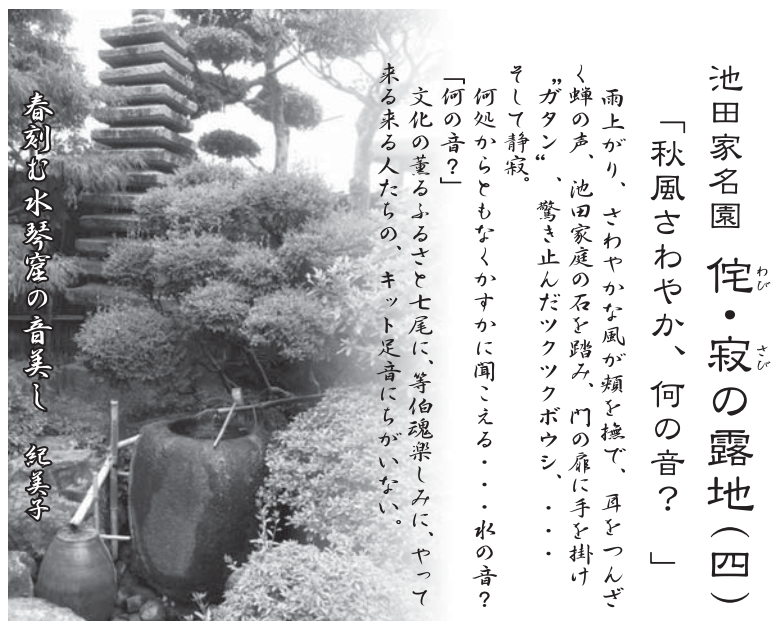 池田家名園 侘・寂の露地(四)
わび
さび
「秋風さわやか、何の音?」
雨上がり、さわやかな風が頬を撫で、耳をつんざ
く蝉の声、池田家庭の石を踏み、門の扉に手を掛け
〝ガタン〟、驚き止んだツクツクボウシ、・・・
そして静寂。
何処からともなくかすかに聞こえる・・・水の音?
「何の音?」
文化の薫るふるさと七尾に、等伯魂楽しみに、やって
来る来る人たちの、キット足音にちがいない。
春刻む水琴窟の音美し 紀美子